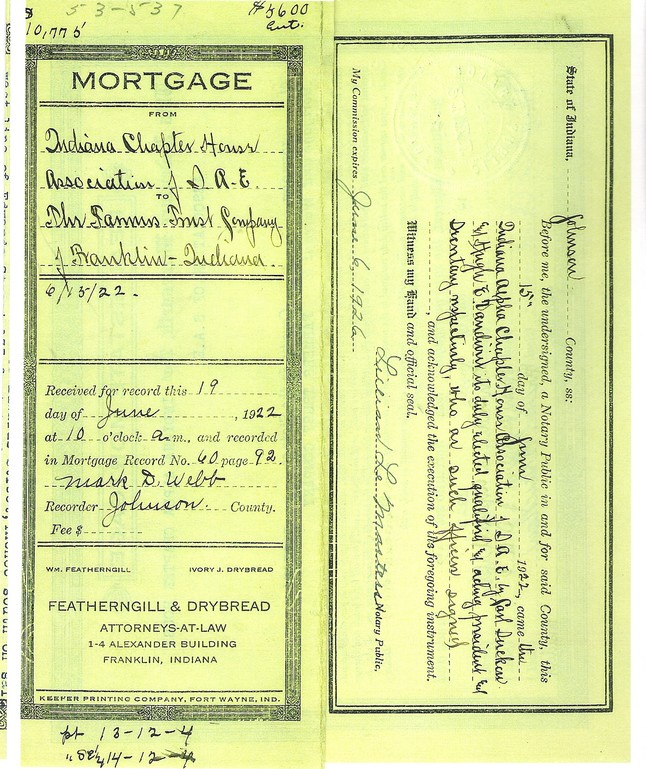 53-537
$5600
Ent.
10,775
MORTGAGE
FROM
Indiana Chapter House
Association of S. A. E.
TO
The Farmers Trust Company
of Franklin - Indiana
6/15/22.
Received for record this 19
day of June, 1922
at 10 o'clock a.m., and recorded
in Mortgage Record No. 60 page 92.
Mark D. Webb
Recorder Johnson County.
Fee $
WM. FEATHERNGILL IVORY J. DRYBREAD
FEATHERNGILL & DRYBREAD
ATTORNEYS-AT-LAW
1-4 ALEXANDER BUILDING
FRANKLIN, INDIANA
KEEFER PRINTING COMPANY, FORT WAYNE, IND.
pt 13-12-4
14-12-4
State of Indiana, Johnson County, ss:
Before me, the undersigned, a Notary Public in and for said County, this
15" day of June 1922, came the
Indiana Alpha Chapter House Association of S. A. E. by
Hugh E. duly elected qualified & acting president &
Secretary respectively, who as such officers signed
, and acknowledged the execution of the foregoing instrument.
Witness my Hand and official seal.
Notary Public.
My Commission expires June 6, 1926